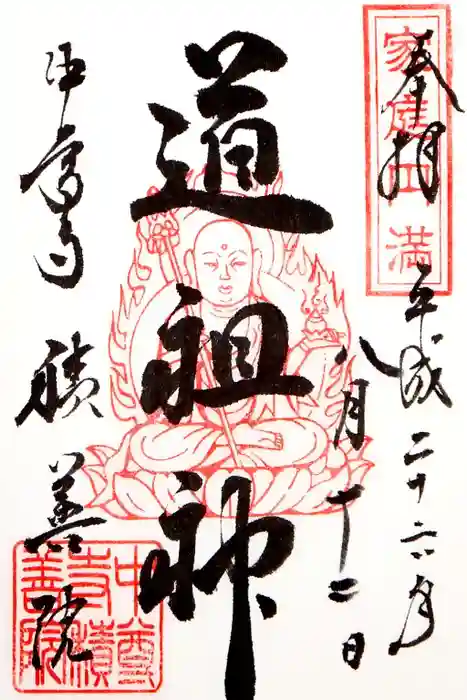 奉拝
家庭円満
平成二十六年
八月十二日
道祖神
中尊寺
積善院
中尊
寺積
善院